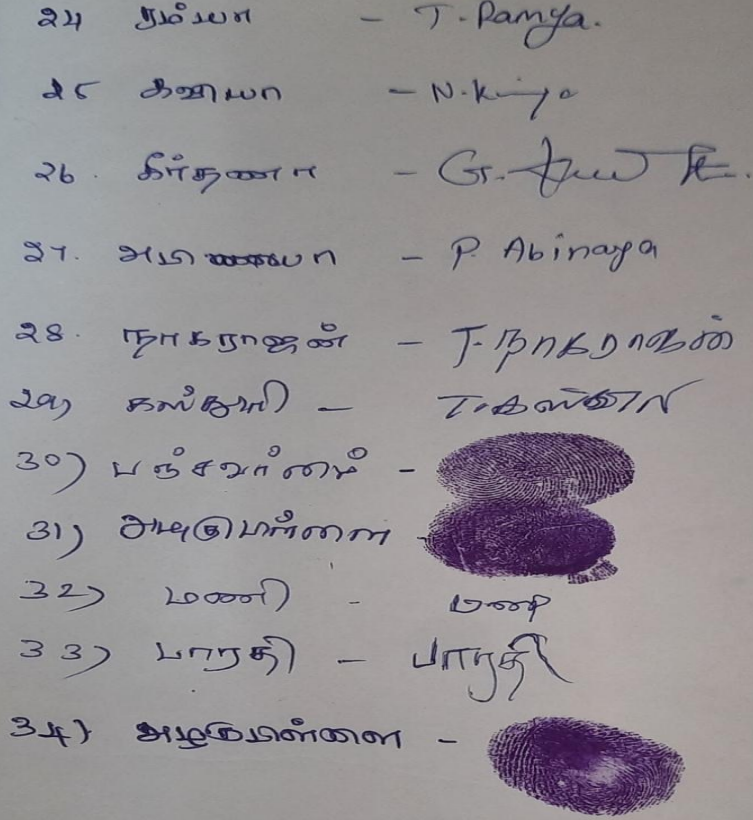 24 ரம்யா - T. Ramya.
25 - N.
26. கீர்தனா - G.
27. அபிநயா - P. Abinaya
28. நாகராஜன் - T. நாகராஜன்
29) கஸ்தூரி - T. கஸ்தூரி
30) பஞ்சவர்ணம் -
31)
32) மணி - மணி
33) பாரதி - பாரதி
34) அழகுபிள்ளை -